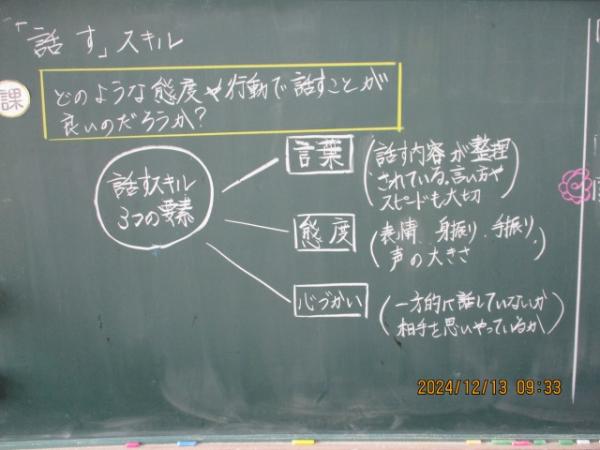 「話す」スキル
課
どのような態度や行動で話すことが
良いのだろうか?
話すスキル
3つの要素
言葉
(話す内容が整理
されている。言い方や
スピードも大切)
態度
(表情、身振り、手振り、
声の大きさ)
心づかい
(一方的に話していないか
相手を思いやっているか)
2024/12/13 09:33